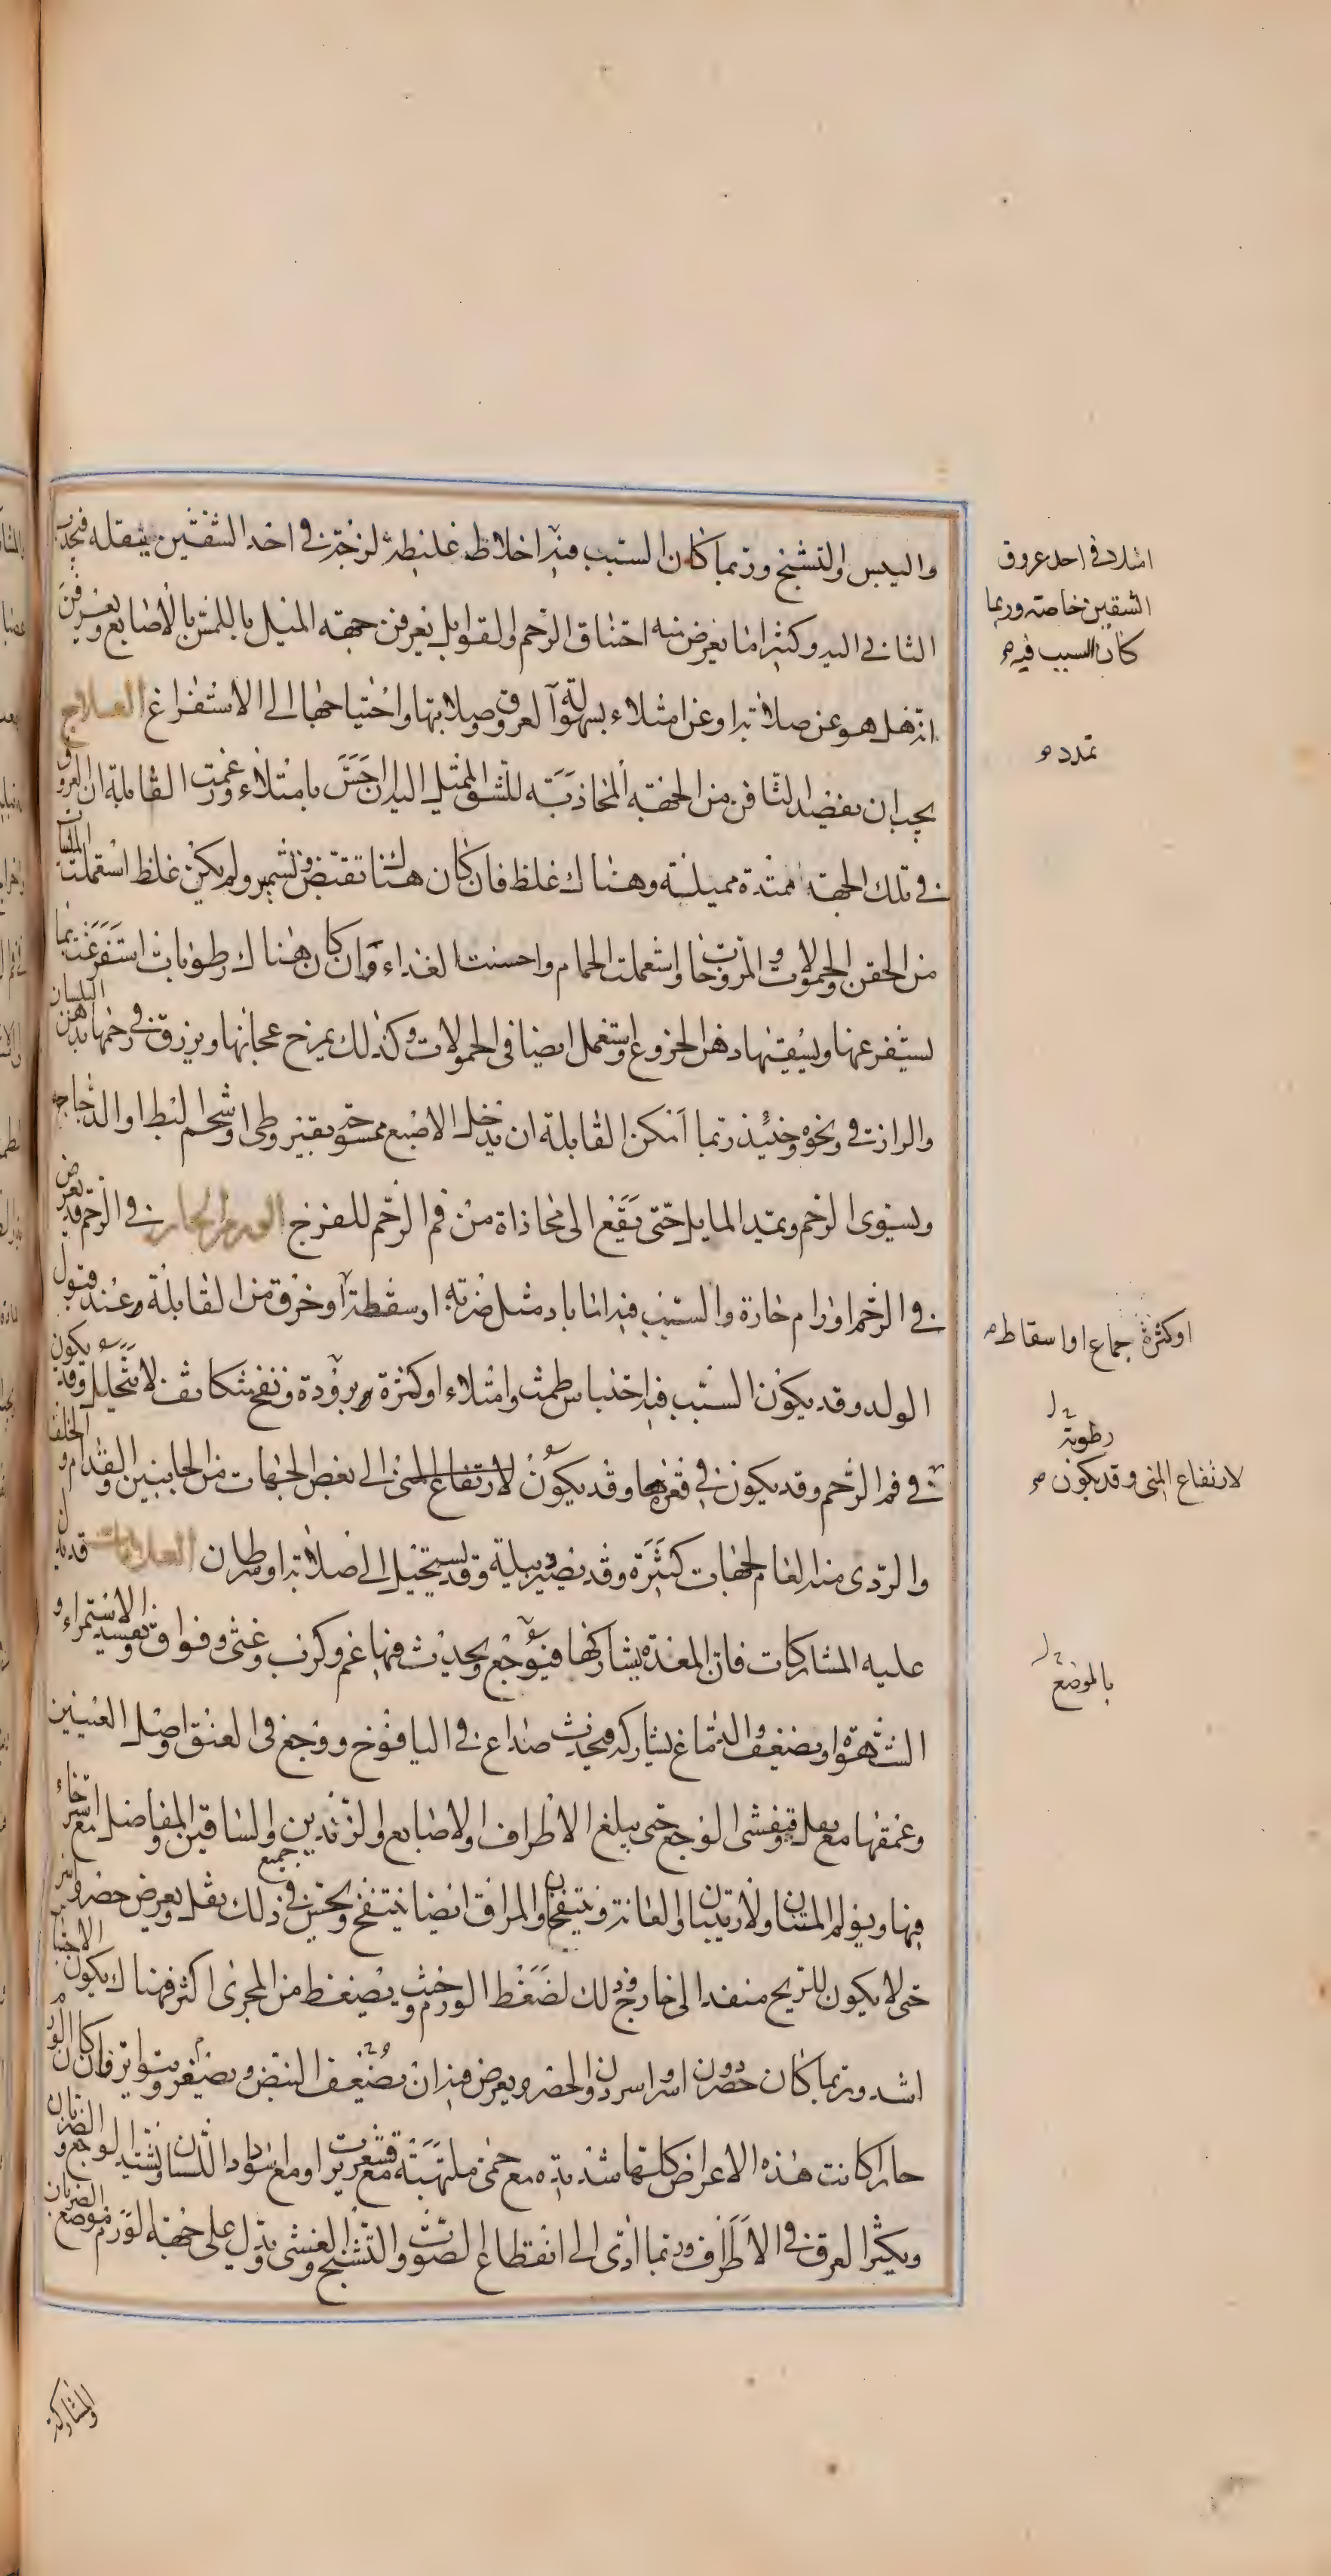 واليبس والتشنج وربما كان السبب فيه اخلاط غليظة لزجة في احد الشقين يثقله فيجذب
الثاني اليه وكثيرا ما يعرض منه اختناق الرحم والقوابل يعرفن جهة الميل باللمس بالاصابع ويعرفن
انه هل هو عن صلابة او عن امتلاء بسهولة العروق وصلابتها واحتياجها الى الاستفراغ العلاج
يجب ان يفصد الصافن من الجهة المحاذية للشق الممثل اليه ان احس بامتلاء وزعمت القابلة ان العروق
في تلك الجهة ممتدة مميلة وهناك غلظ فان كان هناك تقبض وتشمر ولم يكن غلظ استعملت الملينات
من الحقن والحمولات والمروخات واستعملت الحمام واحسنت الغذاء وان كان هناك رطوبات استفرغت بما
يستفرغها ويسقيها دهن الخروع ويستعمل ايضا في الحمولات وكذلك يمرخ عجانها ويزرق في رحمها بدهن البلسان
والرازقي ونحوه وحينئذ ربما امكن القابلة ان يدخل الاصبع ممسوحة بقيروطي او شحم البط او الدجاجة
ويسوى الرحم ويمد المايل حتى يقع الى محاذاة من فم الرحم للفرج الورم الحار في الرحم قد يعرض
في الرحم اورام حارة والسبب فيه اما باد مثل ضربة او سقطة او خرق من القابلة وعند قبول
الولد وقد يكون السبب فيه احتباس طمث وامتلاء او كثرة وبرودة ونفخ متكاثف لا يتحلل وقد يكون
في فم الرحم وقد يكون في قعرها وقد يكون لارتفاع المنى الى بعض الجهات من الجانبين والقدام والخلف
والردى منه العام لجهات كثيرة وقد يصير دبيلة وقد يستحيل الى صلابة او سرطان العلامات قد يدل
عليه المشاركات فان المعدة يشاركها فيوجع ويحدث فيها غم وكرب وغثى وفواق ويفسد الاستمراء و
الشهوة او يضعف والدماغ يشاركه فيحدث صداع في اليافوخ ووجع في العنق واصل العينين
وعمقها مع ثقل ويفشى الوجع حتى يبلغ الاطراف والاصابع والزندين والساقين والمفاصل مع استرخاء
فيها ويولم المتنان والاربيتان والعانة وينتفخان والمراق ايضا ينتفخ ويحس في جميع ذلك بثقل ويعرض حصر واسر
حتى لا يكون للريح منفذ الى خارج وذلك لضغط الورم وحيث يضغط من المجرى اكثر فهناك يكون الاحتباس
اشد وربما كان حصر دون اسر او اسر دون الحصر ويعرض فيه ان يضعف النبض ويصغر ويتواتر فان كان الورم
حارا كانت هذه الاعراض كلها شديدة مع حمى ملتهبة مع قشعريرة او مع اسوداد اللسان ويشتد الوجع والضربان
ويكثر العرق في الاطراف وربما ادى الى انقطاع الصوت والتشنج والغشى ويدل على جهة الورم موضع الضربان
والمشاركة
امتلاء في احد عروق
الشقين خاصة وربما
كان السبب فيه
تمدد
او كثرة جماع او اسقاط
رطوبة
لارتفاع المنى وقد يكون
بالموضع